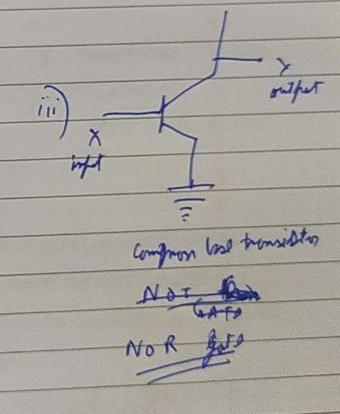 iii)
X
input
Y
output
Common base transistor
NOT
GATE
NOR gate